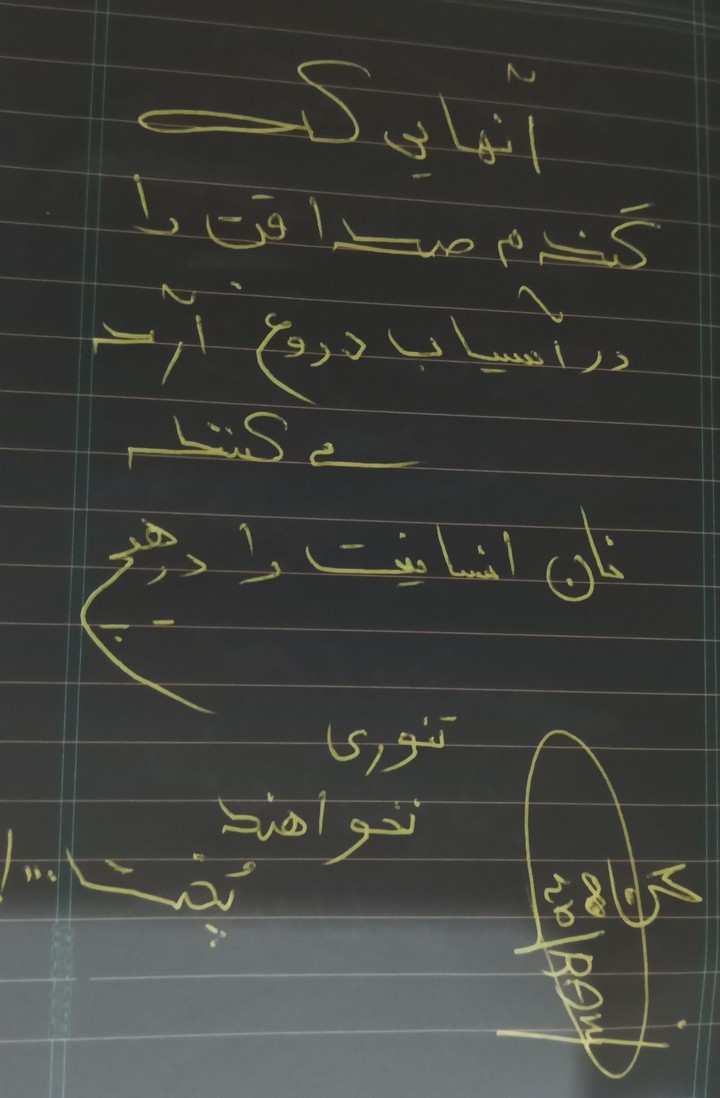 آنهایی که
گندم صداقت را
در آسیاب دروغ آرد
می کنند
نان انسانیت را در هیچ
تنوری
نخواهند
پُخت...!